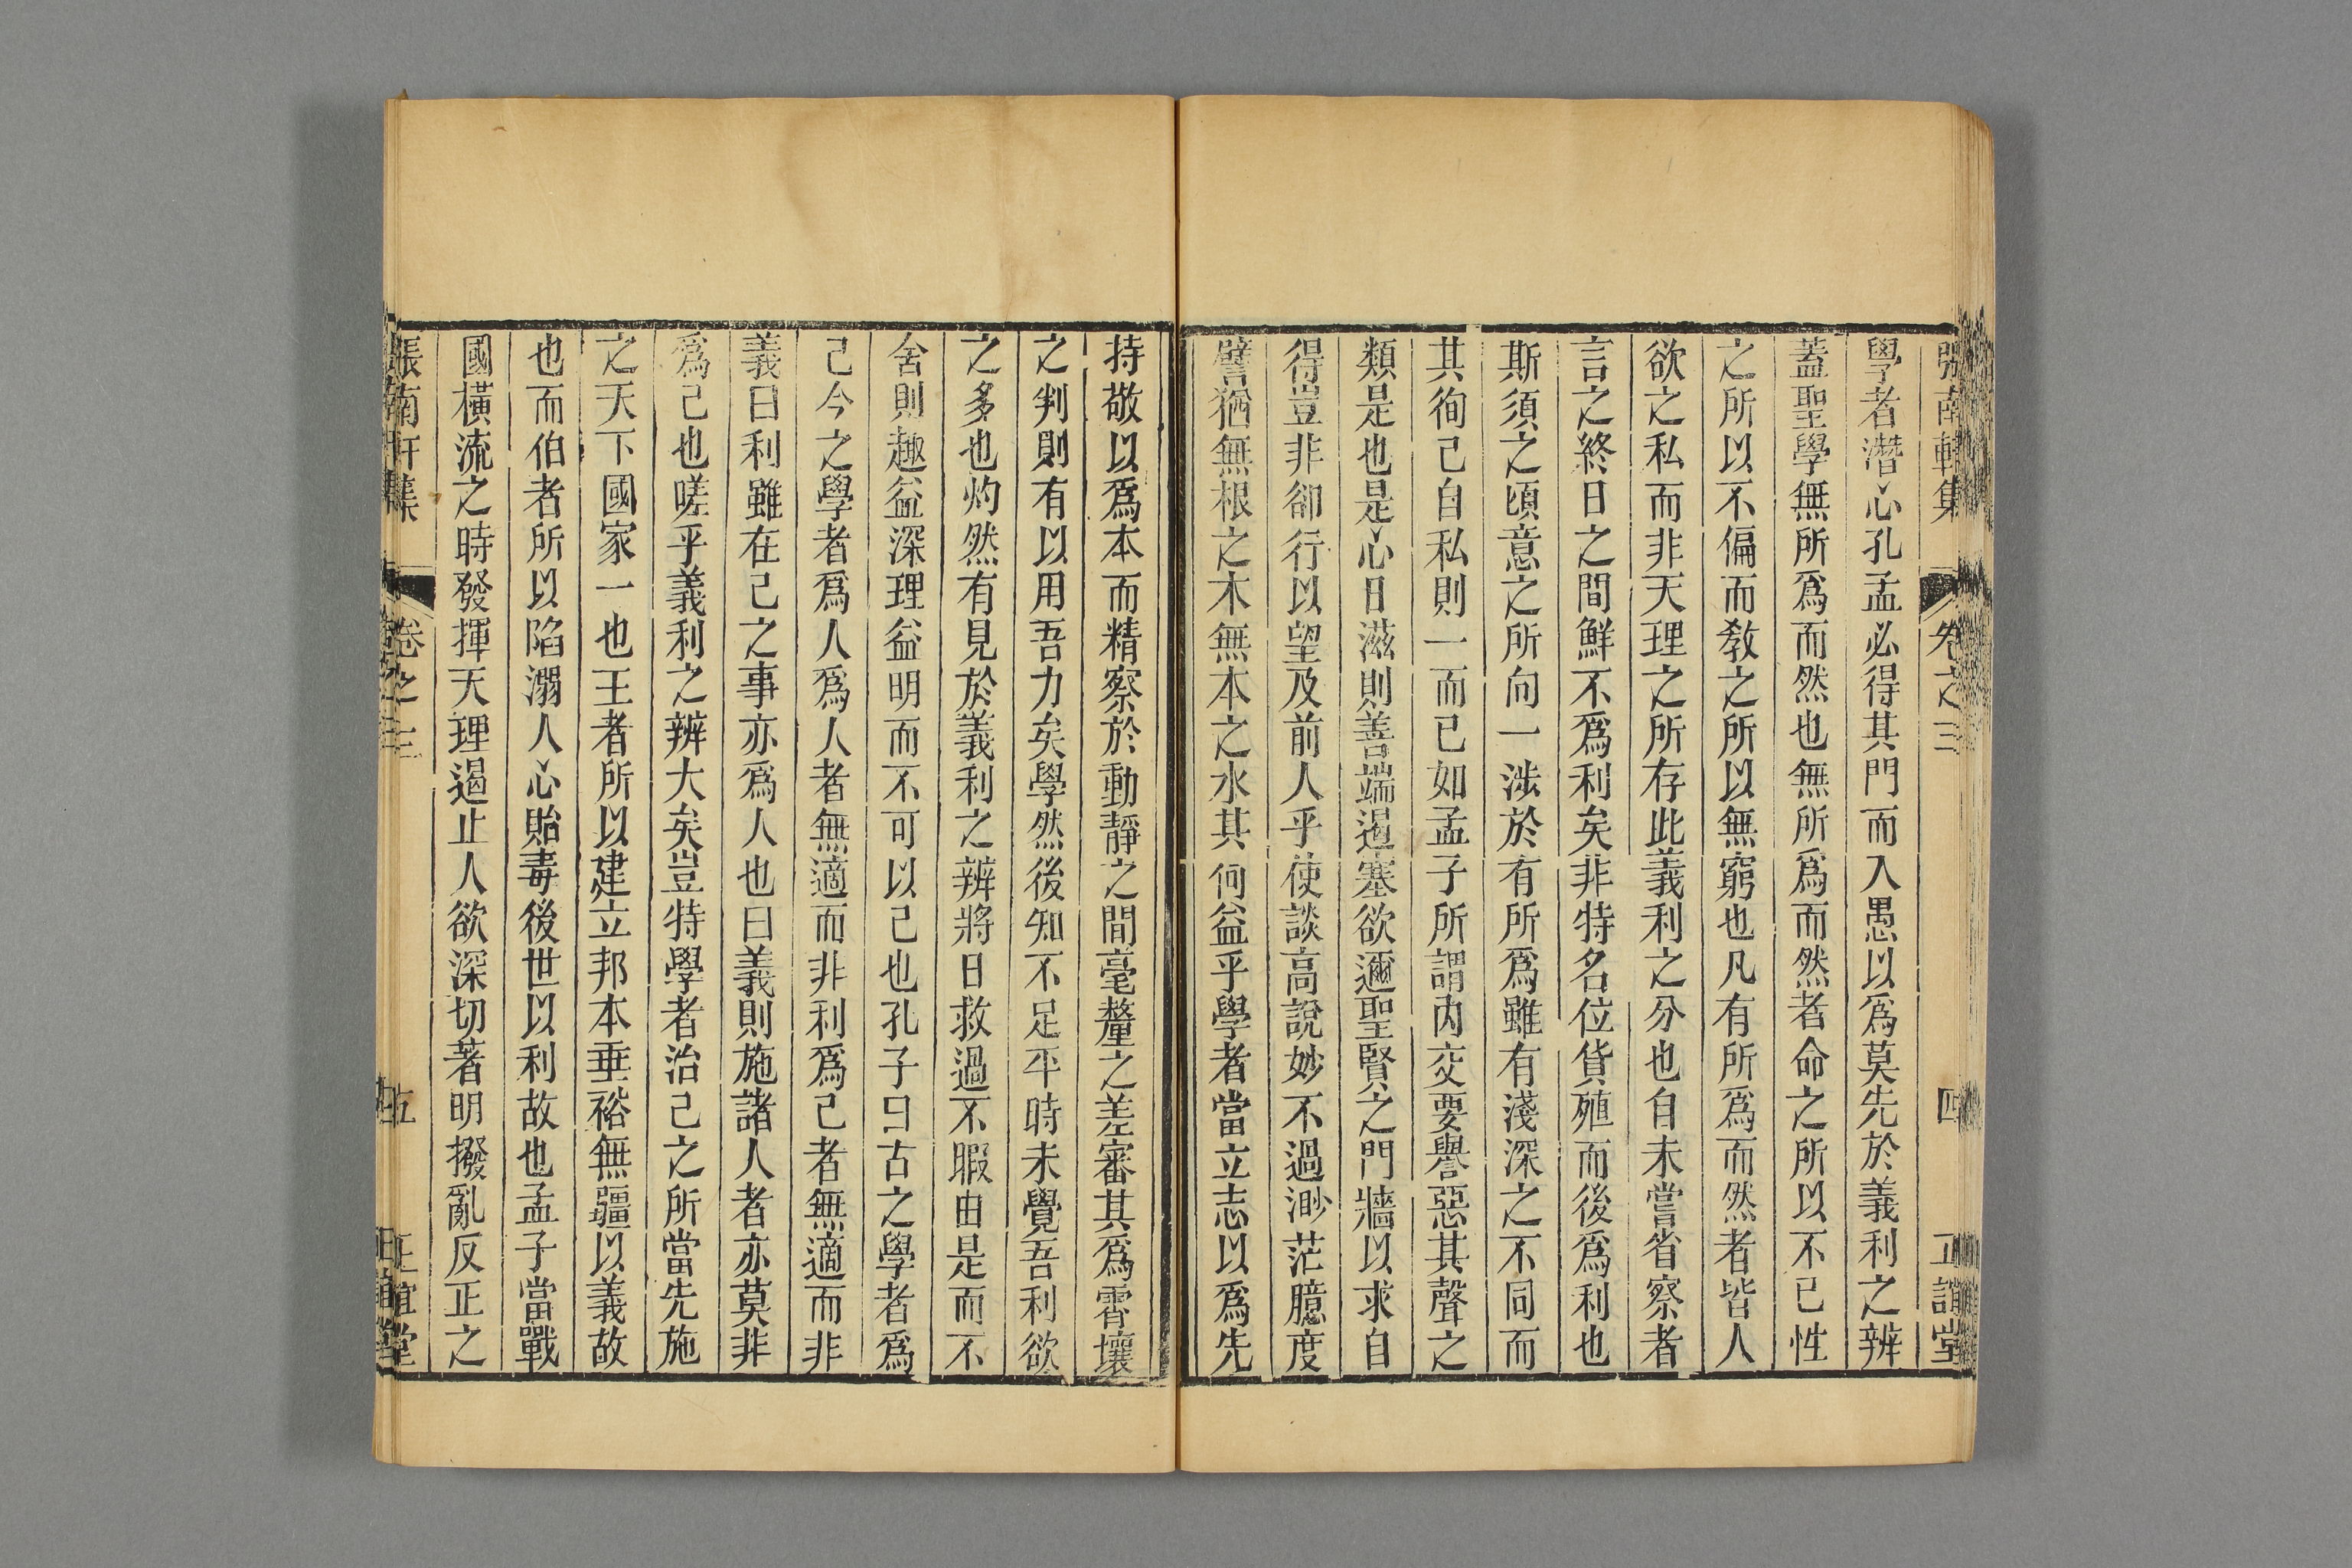 張南軒集 卷之三 四 正誼堂
學者潛心孔孟必得其門而入愚以爲莫先於義利之辨
蓋聖學無所爲而然也無所爲而然者命之所以不已性
之所以不偏而教之所以無窮也凡有所爲而然者皆人
欲之私而非天理之所存此義利之分也自未嘗省察者
言之終日之間鮮不爲利矣非特名位貨殖而後爲利也
斯須之頃意之所向一涉於有所爲雖有淺深之不同而
其徇己自私則一而已如孟子所謂內交要譽惡其聲之
類是也是心日滋則善端遏塞欲邇聖賢之門牆以求自
得豈非卻行以望及前人乎使談高說妙不過渺茫臆度
譬猶無根之木無本之水其何益乎學者當立志以爲先
持敬以爲本而精察於動靜之間毫釐之差審其爲霄壤
之判則有以用吾力矣學然後知不足平時未覺吾利欲
之多也灼然有見於義利之辨將日救過不暇由是而不
舍則趣益深理益明而不可以已也孔子曰古之學者爲
己今之學者爲人爲人者無適而非利爲己者無適而非
義曰利雖在己之事亦爲人也曰義則施諸人者亦莫非
爲己也嗟乎義利之辨大矣豈特學者治己之所當先施
之天下國家一也王者所以建立邦本垂裕無疆以義故
也而伯者所以陷溺人心貽毒後世以利故也孟子當戰
國橫流之時發揮天理遏止人欲深切著明撥亂反正之
張南軒集 卷之三 五 正誼堂